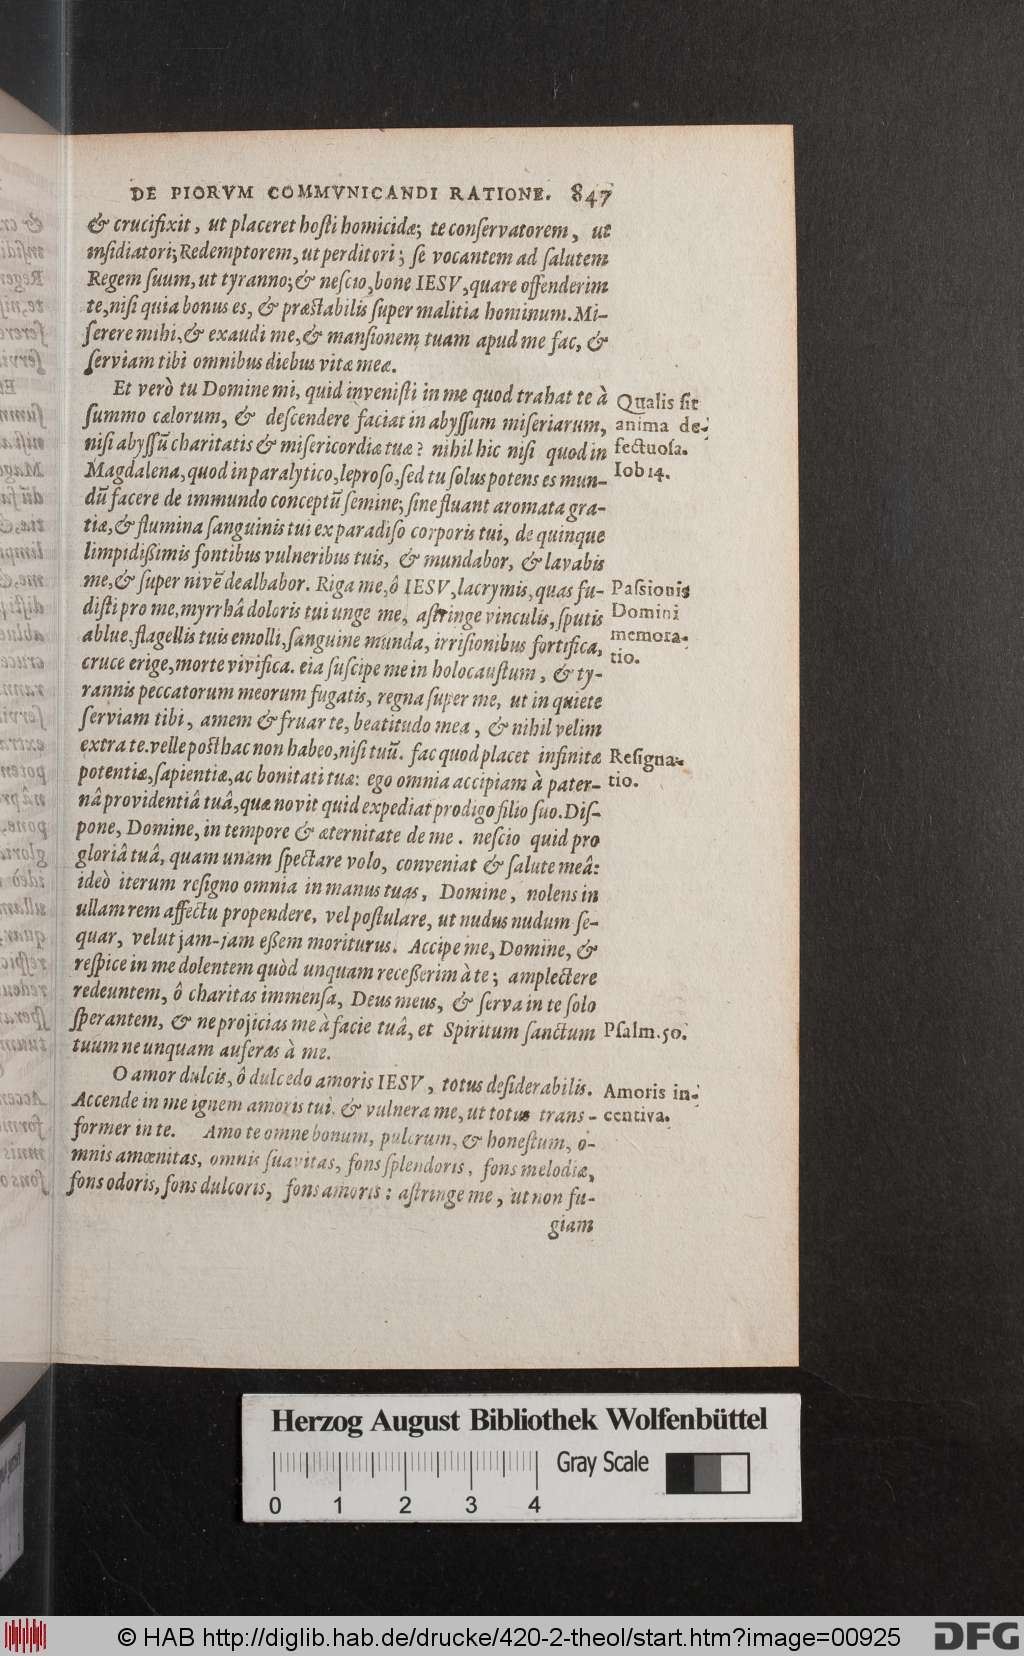 DE PIORVM COMMVNICANDI RATIONE. 847
& crucifixit, ut placeret hosti homicidæ; te conservatorem, ut
insidiatori; Redemptorem, ut perditori; se vocantem ad salutem
Regem suum, ut tyranno; & nescio, bone IESV, quare offenderim
te, nisi quia bonus es, & præstabilis super malitia hominum. Mi-
serere mihi, & exaudi me, & mansionem tuam apud me fac, &
serviam tibi omnibus diebus vitæ meæ.
Et verò tu Domine mi, quid invenisti in me quod trahat te à
summo cælorum, & descendere faciat in abyssum miseriarum,
nisi abyssũ charitatis & misericordiæ tuæ? nihil hic nisi quod in
Magdalena, quod in paralytico, leproso, sed tu solus potens es mun-
dũ facere de immundo conceptũ semine; sine fluant aromata gra-
tiæ, & flumina sanguinis tui ex paradiso corporis tui, de quinque
limpidißimis fontibus vulneribus tuis, & mundabor, & lavabis
me, & super nivẽ dealbabor. Riga me, ô IESV, lacrymis, quas fu-
disti pro me, myrrhâ doloris tui unge me, astringe vinculis, sputis
ablue, flagellis tuis emolli, sanguine munda, irrisionibus fortifica,
cruce erige, morte vivifica. eia suscipe me in holocaustum, & ty-
rannis peccatorum meorum fugatis, regna super me, ut in quiete
serviam tibi, amem & fruar te, beatitudo mea, & nihil velim
extra te. velle posthac non habeo, nisi tuũ. fac quod placet infinitæ
potentiæ, sapientiæ, ac bonitati tuæ: ego omnia accipiam à pater-
nâ providentiâ tuâ, quæ novit quid expediat prodigo filio suo. Dis-
pone, Domine, in tempore & æternitate de me. nescio quid pro
gloriâ tuâ, quam unam spectare volo, conveniat & salute meâ:
ideò iterum resigno omnia in manus tuas, Domine, nolens in
ullam rem affectu propendere, vel postulare, ut nudus nudum se-
quar, velut jam-jam eßem moriturus. Accipe me, Domine, &
respice in me dolentem quòd unquam receßerim à te; amplectere
redeuntem, ô charitas immensa, Deus meus, & serva in te solo
sperantem, & ne projicias me à facie tuâ, et Spiritum sanctum
tuum ne unquam auferas à me.
O amor dulcis, ô dulcedo amoris IESV, totus desiderabilis.
Accende in me ignem amoris tui, & vulnera me, ut totus trans-
former in te. Amo te omne bonum, pulcrum, & honestum, o-
mnis amœnitas, omnis suavitas, fons splendoris, fons melodiæ,
fons odoris, fons dulcoris, fons amoris: astringe me, ut non fu-
giam
Qualis sit
anima de-
fectuosa.
Iob 14.
Passionis
Domini
memora-
tio.
Resigna-
tio.
Psalm. 50.
Amoris in-
centiva.
Herzog August Bibliothek Wolfenbüttel
Gray Scale
0 1 2 3 4
© HAB http://diglib.hab.de/drucke/420-2-theol/start.htm?image=00925
DFG